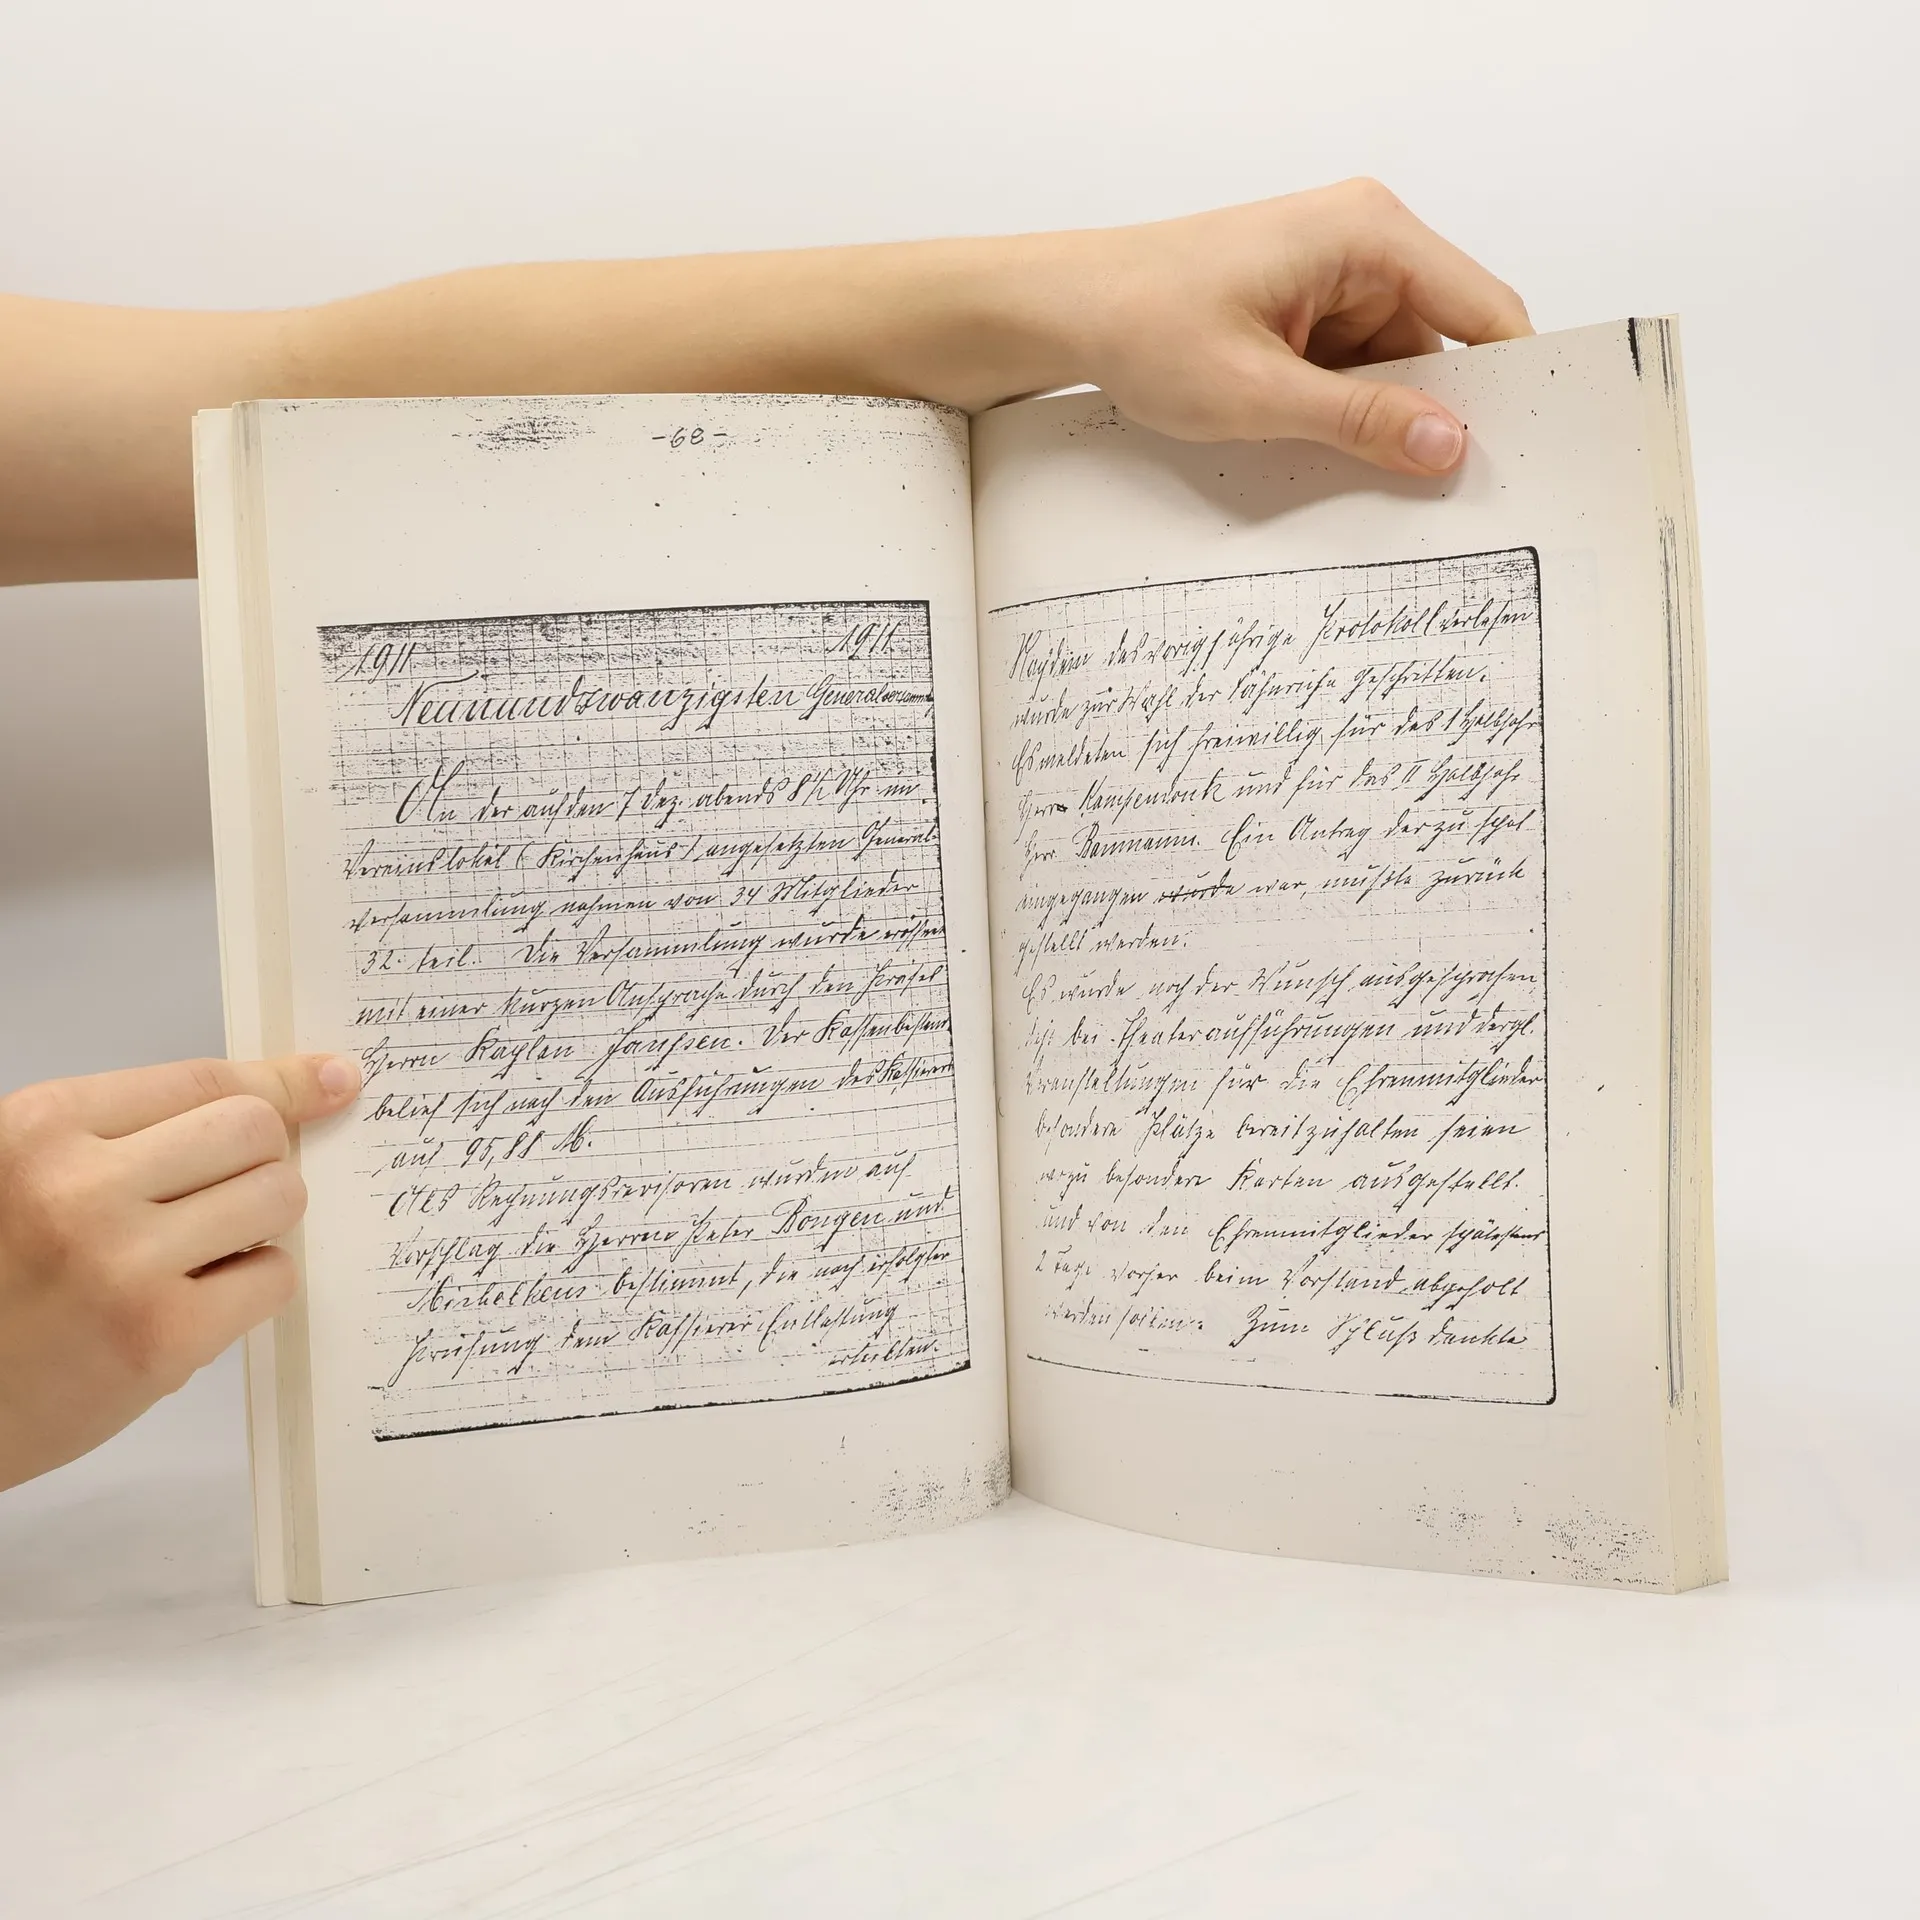 -68-
1911 1911
Neunundzwanzigsten Generalversammlg
An der auf den 7 Dez. abends 8½ Uhr im
Vereinslokal (Kirchenhaus) angesetzten General-
versammlung nahmen von 34 Mitglieder
32 teil. Die Versammlung wurde eröffnet
mit einer kurzen Ansprache durch den Präses
Herrn Kaplan Janssen. Der Kassenbestand
belief sich nach den Ausführungen des Kassierers
auf 95,88 M.
Als Rechnungsrevisoren wurden auf
Vorschlag die Herren Peter Bongen und
bestimmt, die nach erfolgter
Prüfung dem Kassierer Entlastung
erteilten.
Nachdem das vorigjährige Protokoll verlesen
wurde zur Wahl der Fähnriche geschritten.
Es meldeten sich freiwillig für das 1 Halbjahr
Herr Kampendonk und für das II Halbjahr
Herr Baumann. Ein Antrag der zu spät
eingegangen wurde war, mußte zurück
gestellt werden.
Es wurde noch der Wunsch ausgesprochen,
daß bei Theateraufführungen und dergl.
Veranstaltungen für die Ehrenmitglieder
besondere Plätze bereitzuhalten seien
wozu besondere Karten ausgestellt.
und von den Ehrenmitglieder spätestens
2 Tage vorher beim Vorstand abgeholt
werden sollen. Zum Schluß dankte